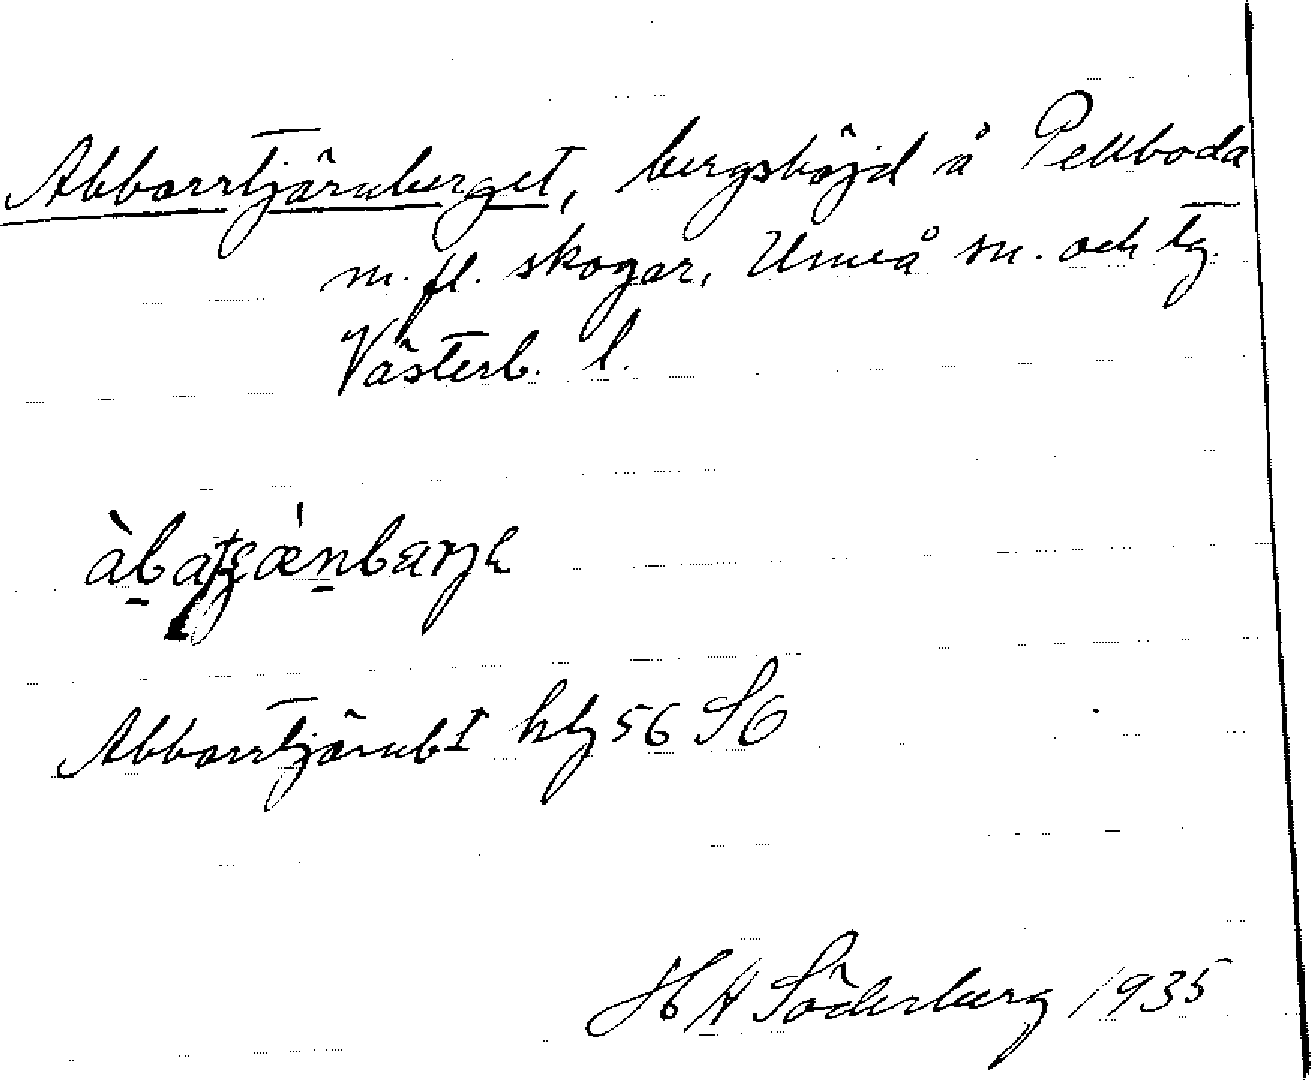 Abborrtjärnberget, bergshöjd å Pellboda
m. fl. skogar, Umeå sn. och tg.
Västerb. l.
Abborrtjärnb I hlz 56 S6
H H Söderberg 1935